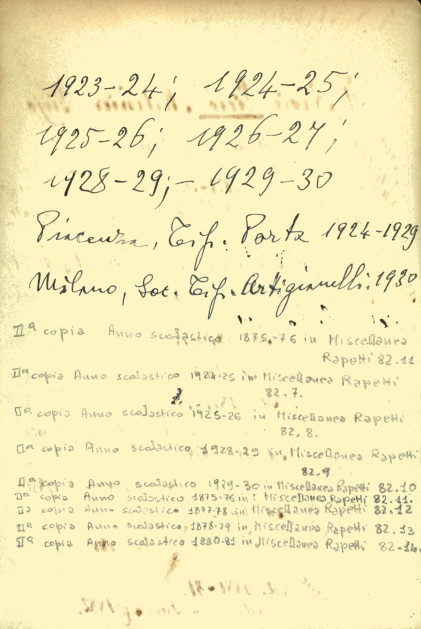 1923-24; 1924-25;
1925-26; 1926-27;
1928-29; - 1929-30
Piacenza, Tip. Porta 1924-1929
Milano, Soc. Tip. Artigianelli. 1930
IIª copia Anno scolastico 1875-76 in Miscellanea
Rapetti 82.11
IIª copia Anno scolastico 1924-25 in Miscellanea Rapetti
82.7.
IIª copia Anno scolastico 1925-26 in Miscellanea Rapetti
82.8.
IIª copia Anno scolastico 1928-29 in Miscellanea Rapetti
82.9
IIª copia Anno scolastico 1929-30 in Miscellanea Rapetti 82.10
IIª copia Anno scolastico 1875-76 in Miscellanea Rapetti 82.11.
IIª copia Anno scolastico 1877-78 in Miscellanea Rapetti 82.12
IIª copia Anno scolastico 1878-79 in Miscellanea Rapetti 82.13
IIª copia Anno scolastico 1880-81 in Miscellanea Rapetti 82.14.